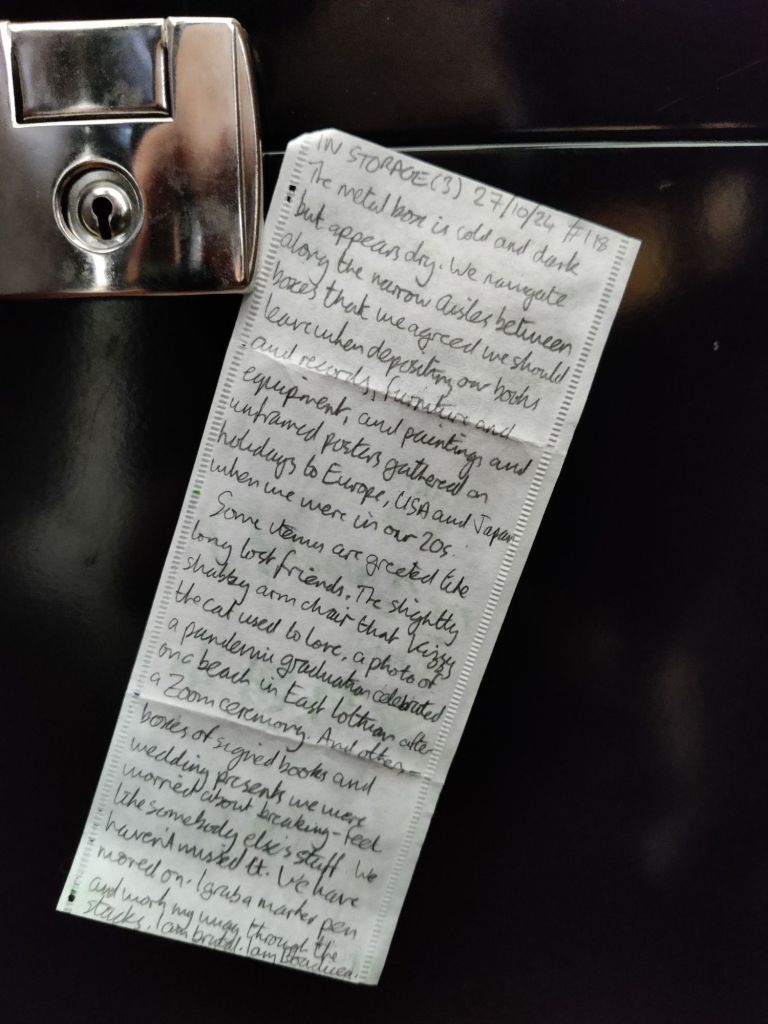 IN STORAGE (3) 27/10/24 #118
The metal box is cold and dark
but appears dry. We navigate
along the narrow aisles between
boxes that we agreed we should
leave when depositing our books
and records, furniture and
equipment, and paintings and
unframed posters gathered on
holidays to Europe, USA and Japan
when we were in our 20s.
Some items are greeted like
long lost friends. The slightly
shabby arm chair that Kizzy
the cat used to love, a photo of
a pandemic graduation celebrated
on a beach in East Lothian after
a Zoom ceremony. And others –
boxes of signed books and
wedding presents we were
worried about breaking – feel
like somebody else's stuff. We
haven't missed it. We have
moved on. I grab a marker pen
and work my way through the
stacks. I am brutal. I am Boadicea.